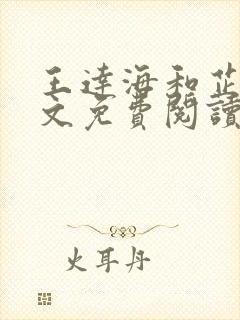 王達海和芷
文免費閱讀
火耳丹